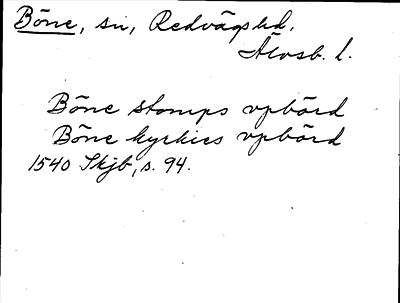 Böne, sn, Redvägs hd.
Älvsb. l.
Böne stomps vpbörd
Böne kyrkies vpbörd
1540 Skjb, s. 94.